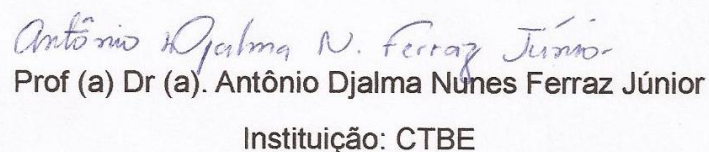 Antônio Djalma N. Ferraz Júnior
Prof (a) Dr (a). Antônio Djalma Nunes Ferraz Júnior
Instituição: CTBE